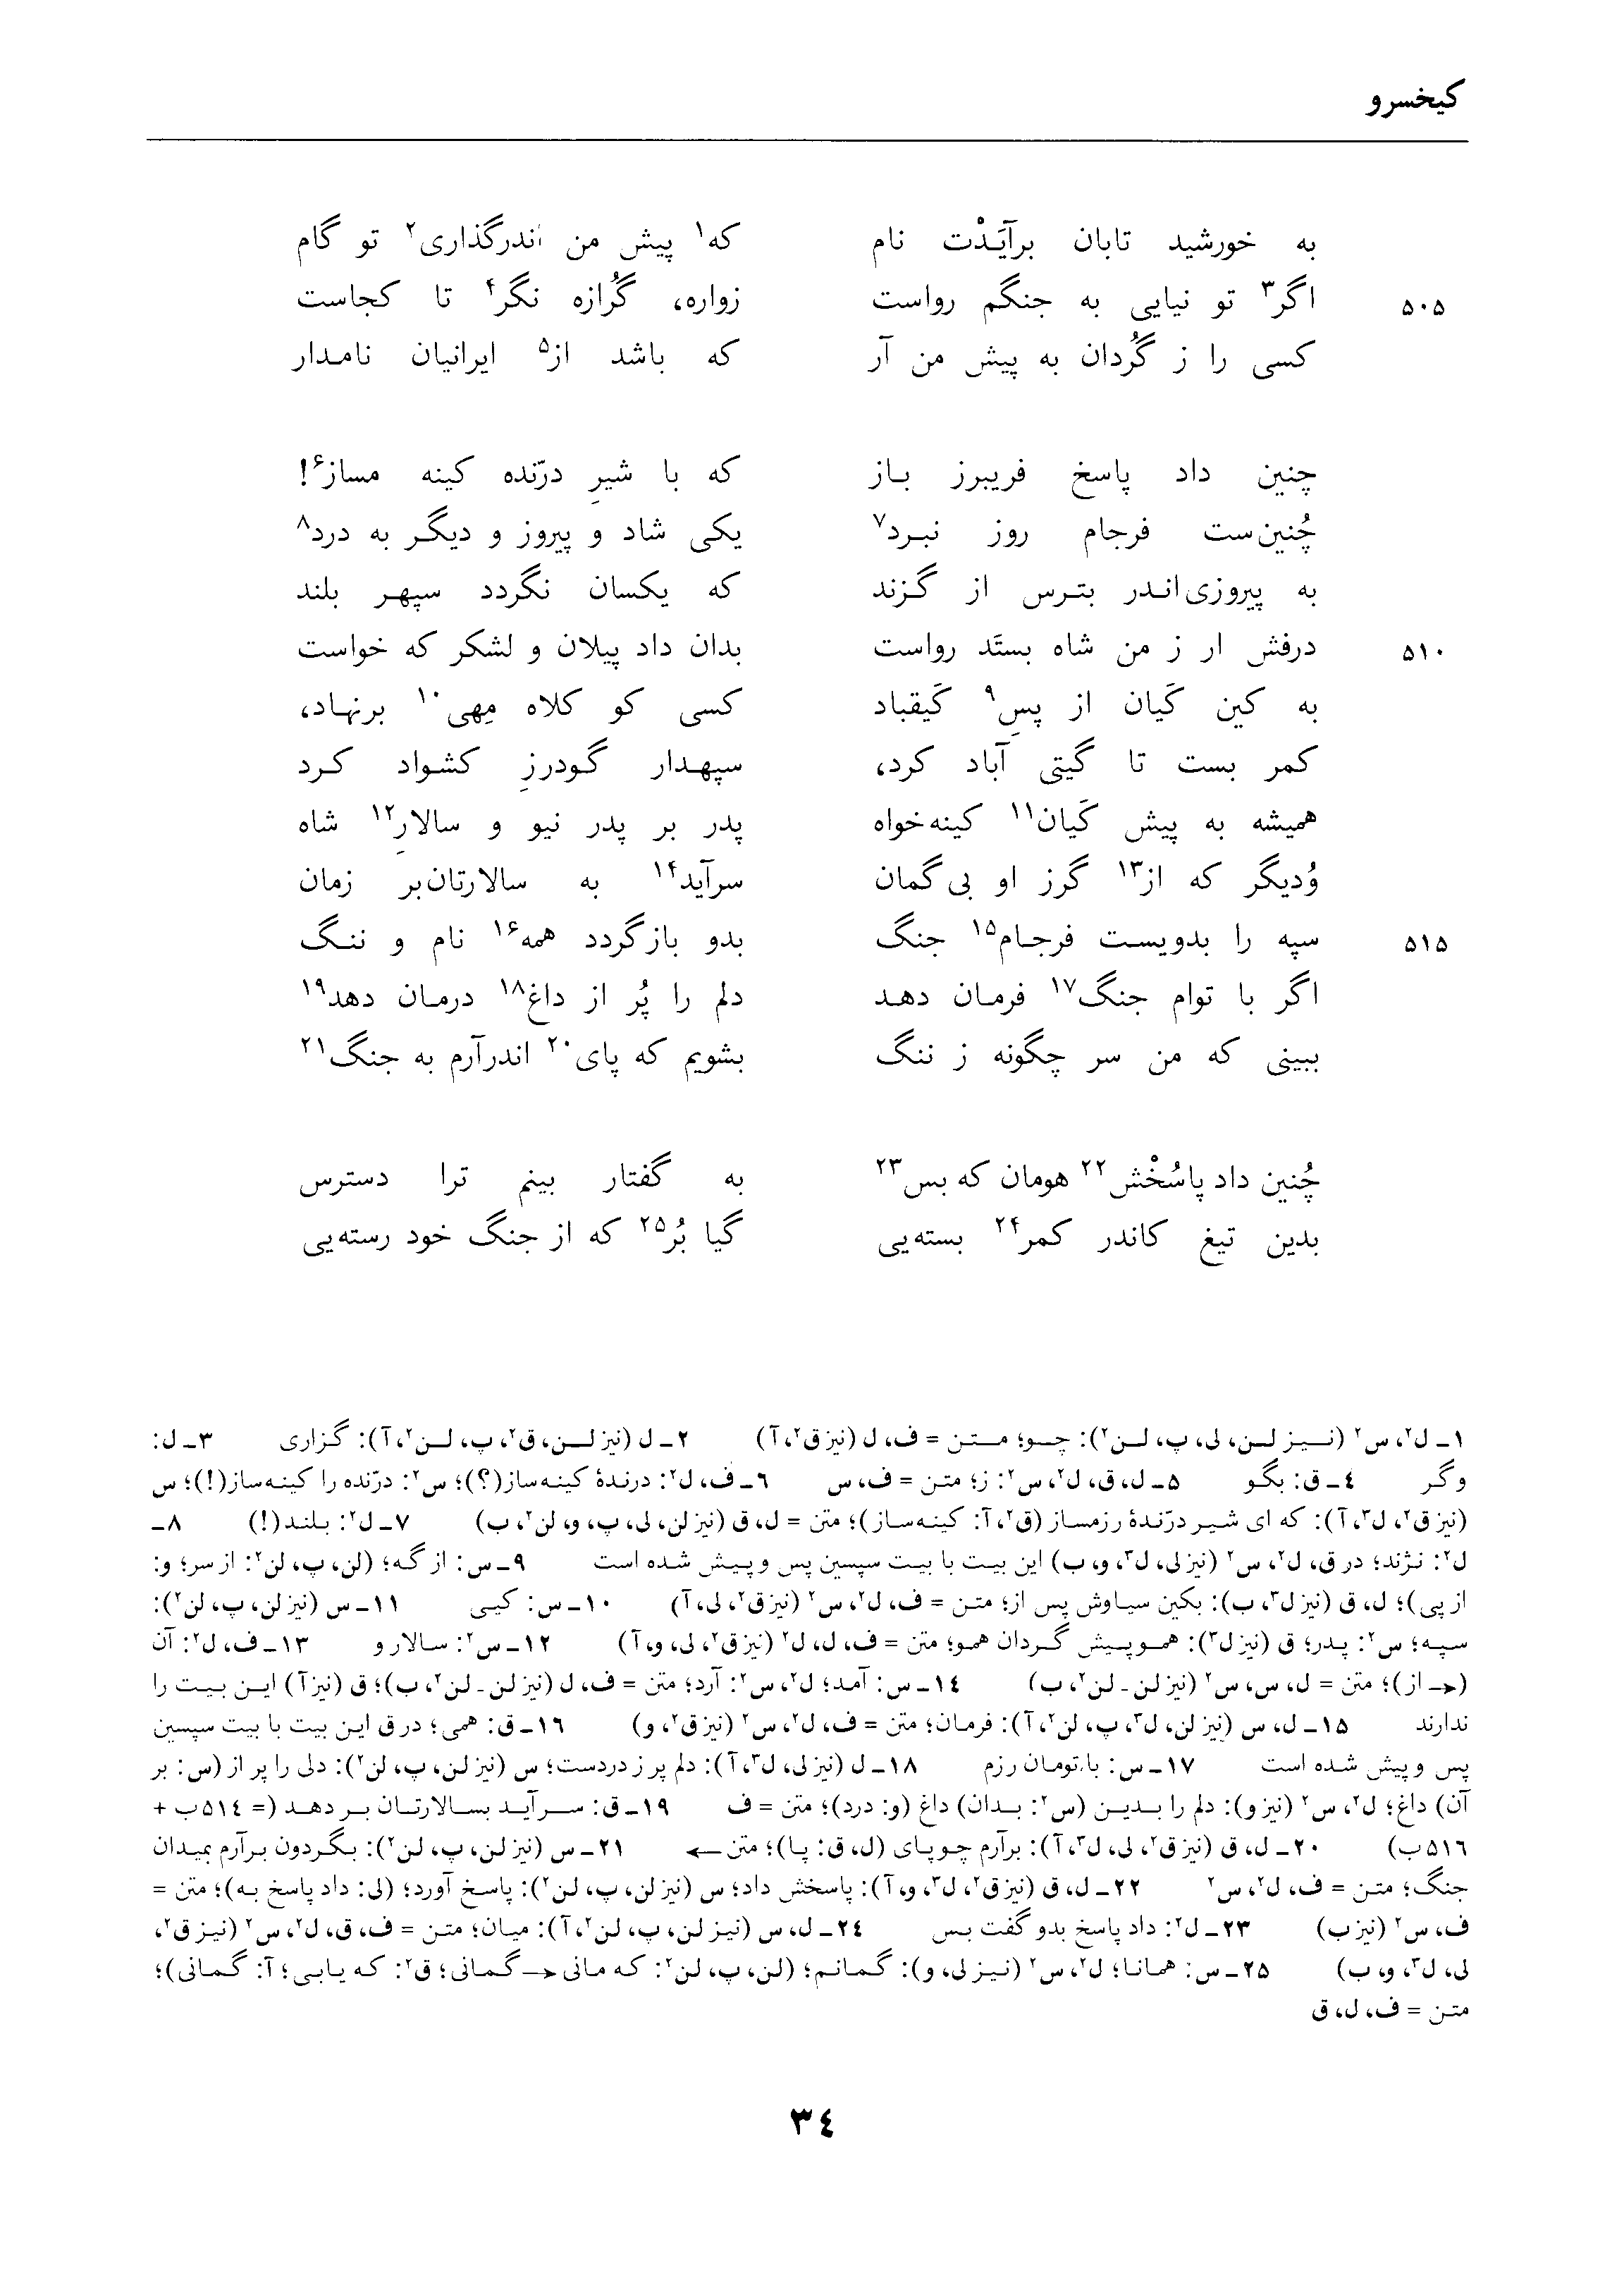 کیخسرو
به خورشید تابان برآیَدْت نام که¹ پیش من اندرگذاری² تو گام
۵۰۵ اگر³ تو نیایی به جنگم رواست زواره، گُرازه نگر⁴ تا کجاست
کسی را ز گُردان به پیش من آر که باشد از⁵ ایرانیان نامدار
چنین داد پاسخ فریبرز باز که با شیرِ درّنده کینه مساز⁶!
چُنین‌ست فرجام روز نبرد⁷ یکی شاد و پیروز و دیگر به درد⁸
به پیروزی‌اندر بترس از گزند که یکسان نگردد سپهر بلند
۵۱۰ درفش ار ز من شاه بستَد رواست بدان داد پیلان و لشکر که خواست
به کین کَیان از پسِ⁹ کَیقباد کسی کو کلاه مِهی¹⁰ برنهاد،
کمر بست تا گیتی آباد کرد، سپهدار گودرزِ کشواد کرد
همیشه به پیش کَیان¹¹ کینه‌خواه پدر بر پدر نیو و سالارِ¹² شاه
وُدیگر که از¹³ گرز او بی‌گمان سرآید¹⁴ به سالارتان‌بر زمان
۵۱۵ سپه را بدویست فرجام¹⁵ جنگ بدو بازگردد همه¹⁶ نام و ننگ
اگر با توام جنگ¹⁷ فرمان دهد دلم را پُر از داغ¹⁸ درمان دهد¹⁹
ببینی که من سر چگونه ز ننگ بشویم که پای²⁰ اندرآرم به جنگ²¹
چُنین داد پاسُخْش²² هومان که بس²³ به گفتار بینم ترا دسترس
بدین تیغ کاندر کمر²⁴ بسته‌یی گیا بُر²⁵ که از جنگ خود رسته‌یی
۱ـ ل²، س² (نیز لن، لی، پ، لن²): چو؛ متن = ف، ل (نیز ق²، آ) ۲ـ ل (نیز لن، ق²، پ، لن²، آ): گزاری ۳ـ ل:
وگر ٤ـ ق: بگو ۵ـ ل، ق، ل²، س²: ز؛ متن = ف، س ٦ـ ف، ل²: درندهٔ کینه‌ساز(؟)؛ س²: درّنده را کینه‌ساز(!)؛ س
(نیز ق²، ل³، آ): که ای شیر درّندهٔ رزمساز (ق²، آ: کینه‌ساز)؛ متن = ل، ق (نیز لن، لی، پ، و، لن²، ب) ۷ـ ل²: بلند(!) ۸ـ
ل²: نژند؛ در ق، ل²، س² (نیز لی، ل³، و، ب) این بیت با بیت سپسین پس و پیش شده است ۹ـ س: از گه؛ (لن، پ، لن²: از سر؛ و:
از پی)؛ ل، ق (نیز ل³، ب): بکین سیاوش پس از؛ متن = ف، ل²، س² (نیز ق²، لی، آ) ۱۰ـ س: کیی ۱۱ـ س (نیز لن، پ، لن²):
سپه؛ س²: پدر؛ ق (نیز ل³): همو پیش گردان همو؛ متن = ف، ل، ل² (نیز ق²، لی، و، آ) ۱۲ـ س²: سالار و ۱۳ـ ف، ل²: آن
(← از)؛ متن = ل، س، س² (نیز لن ـ لن²، ب) ۱٤ـ س: آمد؛ ل²، س²: آرد؛ متن = ف، ل (نیز لن ـ لن²، ب)؛ ق (نیز آ) این بیت را
ندارند ۱۵ـ ل، س (نیز لن، ل³، پ، لن²، آ): فرمان؛ متن = ف، ل²، س² (نیز ق²، و) ۱٦ـ ق: همی؛ در ق این بیت با بیت سپسین
پس و پیش شده است ۱۷ـ س: با، تومان رزم ۱۸ـ ل (نیز لی، ل³، آ): دلم پر ز دردست؛ س (نیز لن، پ، لن²): دلی را پر از (س: بر
آن) داغ؛ ل²، س² (نیز و): دلم را بدین (س²: بدان) داغ (و: درد)؛ متن = ف ۱۹ـ ق: سرآید بسالارتان بر دهد (= ۵۱٤ب +
۵۱٦ب) ۲۰ـ ل، ق (نیز ق²، لی، ل³، آ): برآرم چو پای (ل، ق: پا)؛ متن ← ۲۱ـ س (نیز لن، پ، لن²): بگردون برآرم بمیدان
جنگ؛ متن = ف، ل²، س² ۲۲ـ ل، ق (نیز ق²، ل³، و، آ): پاسخش داد؛ س (نیز لن، پ، لن²): پاسخ آورد؛ (لی: داد پاسخ به)؛ متن =
ف، س² (نیز ب) ۲۳ـ ل²: داد پاسخ بدو گفت بس ۲٤ـ ل، س (نیز لن، پ، لن²، آ): میان؛ متن = ف، ق، ل²، س² (نیز ق²،
لی، ل³، و، ب) ۲۵ـ س: همانا؛ ل²، س² (نیز لی، و): گمانم؛ (لن، پ، لن²: که مانی ← گمانی؛ ق²: که یابی؛ آ: گمانی)؛
متن = ف، ل، ق
۳٤